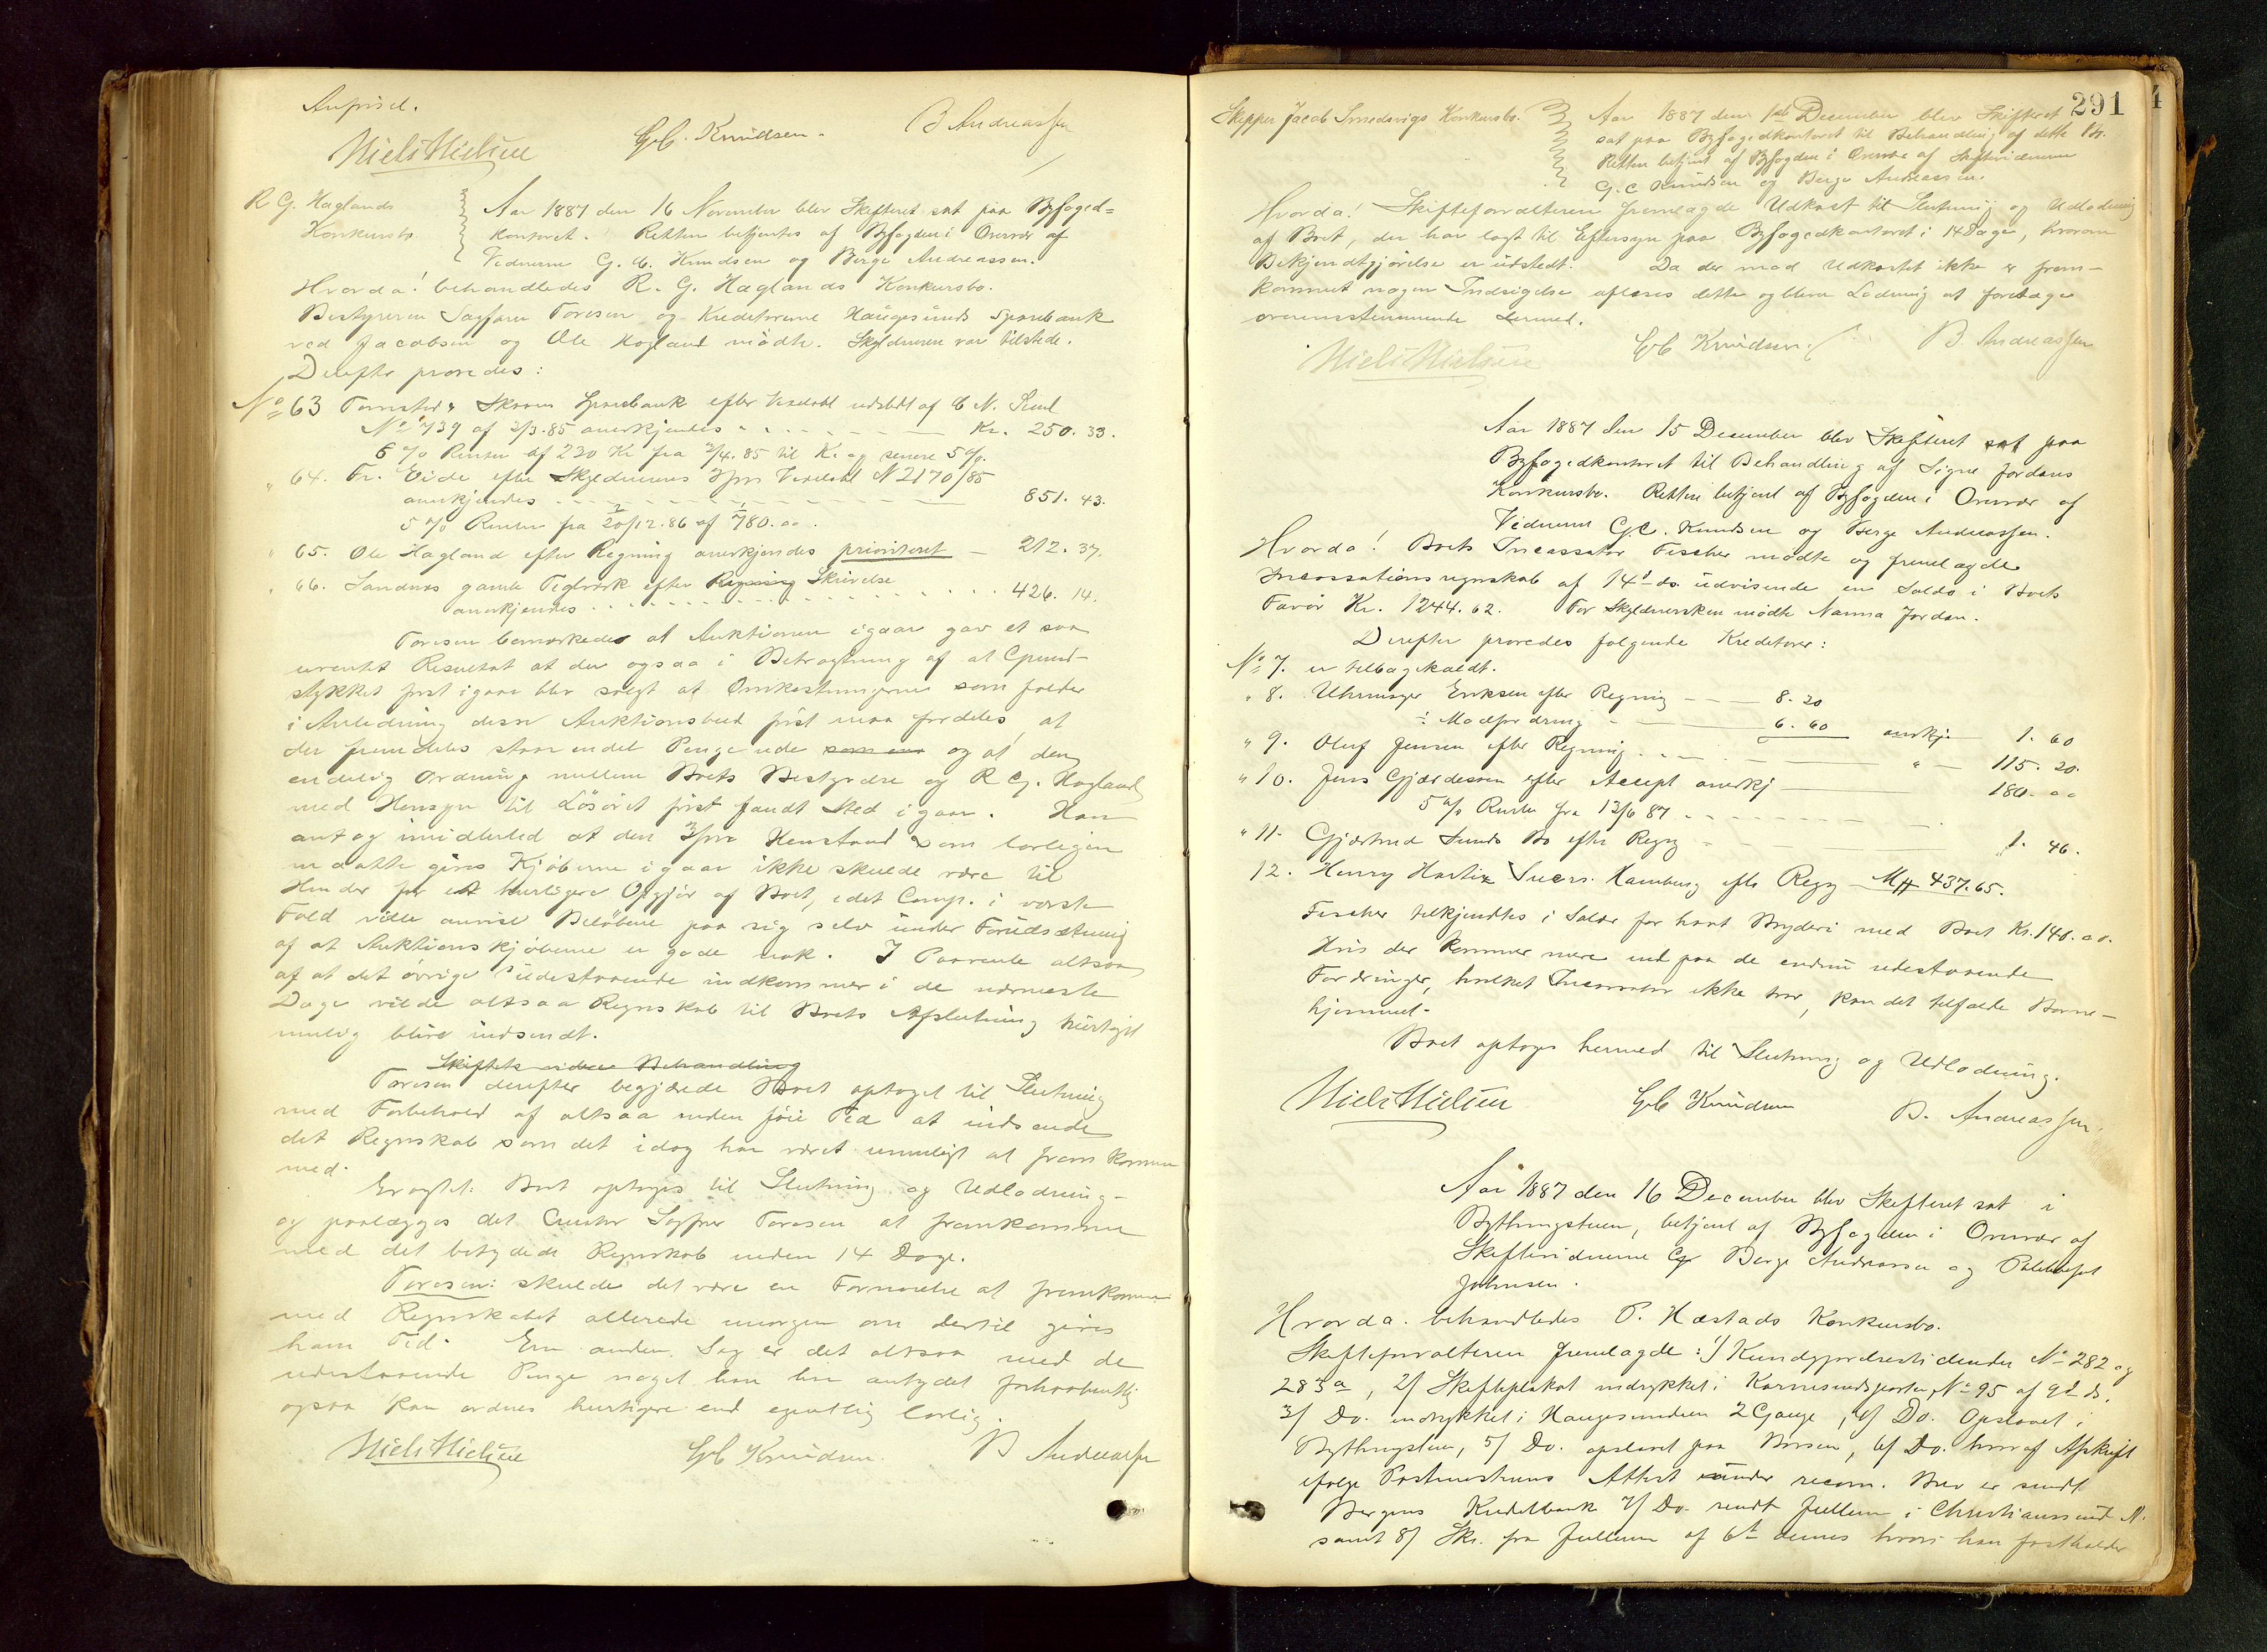 Anført.
Niels Nielsen G.C. Knudsen. B Andreassen
R G. Haglands
Konkursbo.
Aar 1887 den 16 November blev Skifteret sat paa Byfoged=
kontoret. Retten betjentes af Byfogden i Overvær af
Vidnerne G. C. Knudsen og Berge Andreassen.
Hvorda! behandledes R. G. Haglands Konkursbo.
Bestyreren Sagfører Toresen og Kreditorerne Haugesunds Sparebank
ved Jacobsen og Ole Hagland mødte. Skyldneren var tilstede.
Derefter prøvedes:
No 63 Skaare Sparebank efter Vexelobl udstedt af
No 739 af 2/3.85 anerkjendes Kr. 250.33.
6 % Renter af 230 Kr fra 2/4.85 til K. og senere 5 %.
" 64. Fr. Eide efter Skyldnerens Vexelobl N 2170/85
anerkjendes 851.43.
5 % Renter fra 20/12.86 af 780.00.
" 65. Ole Hagland efter Regning anerkjendes prioriteret 212.37.
" 66. Sandnes gamle Teglværk efter Regning Skrivelse
anerkjendes 426.14.
Toresen bemærkede at Auktionen igaar gav et saa
Resultat at der ogsaa i Betragtning af at Grund-
stykket først igaar blev solgt at Omkostningerne som falder
i Anledning disse Auktionsbud først maa fordeles, at
der fremdeles staar endel Penge ude som er og at den
endelig Ordning mellem Boets Bestyrelse og R G. Hagland
med Hensyn til Løsøret først fandt Sted igaar. Han
antog imidlertid at den Henstand som lovligen
maatte gives Kjøberne igaar ikke skulde være til
Hinder for et hurtigere Opgjør af Boet, idet Comp. i værste
Fald vilde anvise Beløbene paa sig selv under Forudsætning
af at Auktionskjøberne er gode nok. I Paavente altsaa
af at det øvrige udestaaende indkommer i de nærmeste
Dage vilde altsaa Regnskab til Boets Afslutning hurtigst
mulig blive indsendt.
Skiftets videre Behandling
Toresen derefter begjærede Boet optaget til Slutning
med Forbehold af altsaa inden føie Tid at indsende
det Regnskab som det idag har været umuligt at fremkomme
med.
Eragtet: Boet optages til Slutning og Udlodning -
og paalægges det Curator Sagfører Toresen at fremkomme
med det betydede Regnskab inden 14 Dage.
Toresen: skulde det være en Fornøielse at fremkomme
med Regnskabet allerede imorgen om dertil gives
ham Tid. En anden Sag er det altsaa med de
udestaaende Penge noget han har antydet forhaabentlig
ogsaa kan ordnes hurtigere end egentlig lovlig.
Niels Nielsen G.C. Knudsen. B Andreassen
291
Skipper Jacob Smedsvigs Konkursbo.
Aar 1887 den 1ste December blev Skifteret
sat paa Byfogedkontoret til Behandling af dette Bo.
Retten betjent af Byfogden i Overvær af Skiftevidnerne
G. C Knudsen og Berge Andreassen.
Hvorda! Skifteforvalteren fremlagde Udkast til Slutning og Udlodning
af Boet, der har lagt til Eftersyn paa Byfogedkontoret i 14 Dage, hvorom
Bekjendtgjørelse er udstedt. Da der mod Udkastet ikke er frem-
kommet nogen Indsigelse aflæses dette og blev Lodning at foretage
overensstemmende dermed.
Niels Nielsen G.C. Knudsen. B. Andreassen
Aar 1887 den 15 December blev Skifteret sat paa
Byfogedkontoret til Behandling af Signe Jordans
Konkursbo. Retten betjent af Byfogden i Overvær af
Vidnerne G.C. Knudsen og Berge Andreassen.
Hvorda! Boets Incassator Fischer mødte og fremlagde
Incassationsregnskab af 14de ds. udvisende en Saldo i Boets
Favør Kr. 1244.62. For Skyldnersken mødte Nanna Jordan.
Derefter prøvedes følgende Kreditorer:
No 7. er tilbagekaldt.
" 8. Uhrmager Eriksen efter Regning 8.20
÷ Modfordring 6.60 anerkj 1.60
" 9. Oluf Jensen efter Regning " 115.20.
" 10. Jens Gjærdesen efter Accept anerkj 180.00
5 % Renter fra 13/6 87
" 11. Gjærtrud Sunds Bo efter Regng 1.46.
12. Henry Hartig Succrs. Hamburg efter Regg M 437.65.
Fischer tilkjendtes i Salær for havt Bryderi med Boet Kr. 140.00.
Hvis der kommer mere ind paa de endnu udestaaende
Fordringer, hvilket Incassator ikke tror, kan det tilfalde Børne-
hjemmet.
Boet optages hermed til Slutning og Udlodning.
Niels Nielsen G.C. Knudsen B. Andreassen.
Aar 1887 den 16 December blev Skifteret sat i
Bythingstuen, betjent af Byfogden i Overvær af
Skiftevidnerne Berge Andreassen og
Johnsen.
Hvorda. behandledes P. Hæstads Konkursbo.
Skifteforvalteren fremlagde: 1/ Kundgjørelsestidender No 282 og
283a, 2/ Skifteplakat indrykket i Karmsundsposten No 95 af 9de ds.
3/ Do. indrykket i Haugesunderen 2 Gange, 4/ Do. Opslaaet i
Bythingstuen, 5/ Do. opslaaet paa Børsen, 6/ Do. hvoraf Afskrift
ifølge Postmesterens Attest under recom. Brev er sendt
Bergens Kreditbank 7/ Do. sendt Jullum i Christianssund N.
samt 8/ Skr. fra Jullum af 6te dennes hvori han fastholder